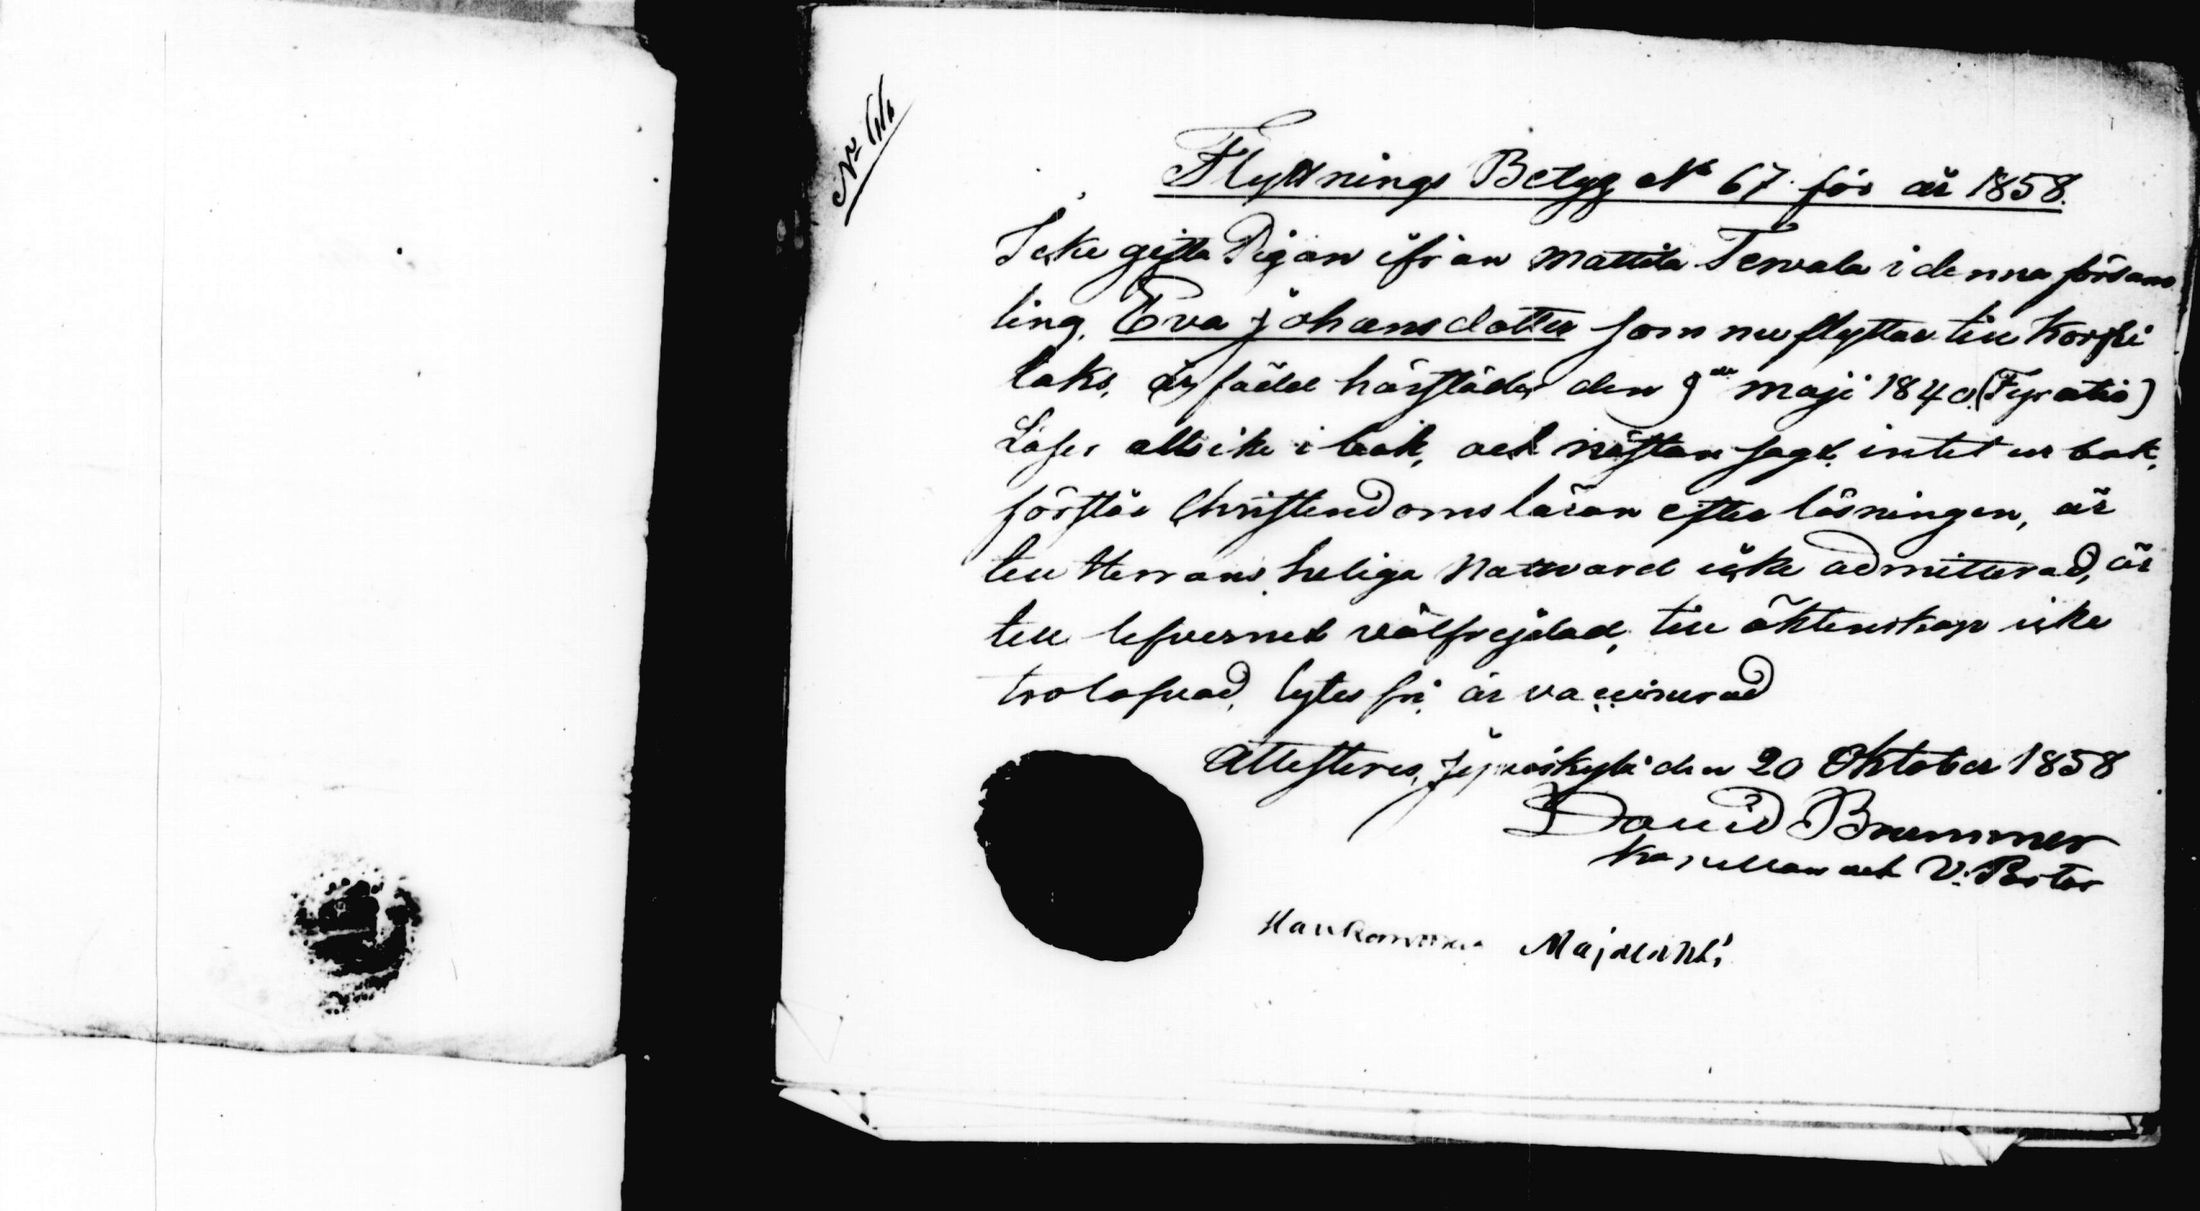 Flyttnings Betyg No 67 för år 1858.
Icke gifta Pigan ifrån Mattila Tervala i denna försam
ling, Eva Johansdotter som nu flyttar till Korpi
laks, är född härstädes den 9de Maji 1840 (Fyratio)
Läser allsike i bok, och nästan sagt intet ur bok,
förstår Christendomsläran efter läsningen, är
till Herrans heliga Nattvard icke admitterad, är
till lefvernet välfrejdad, till äktenskap icke
trolofvad, lytes fri, är vaccinerad
Attesteres, Jyväskylä den 20 Oktober 1858
David Brummer
Kapellan och V. Pastor